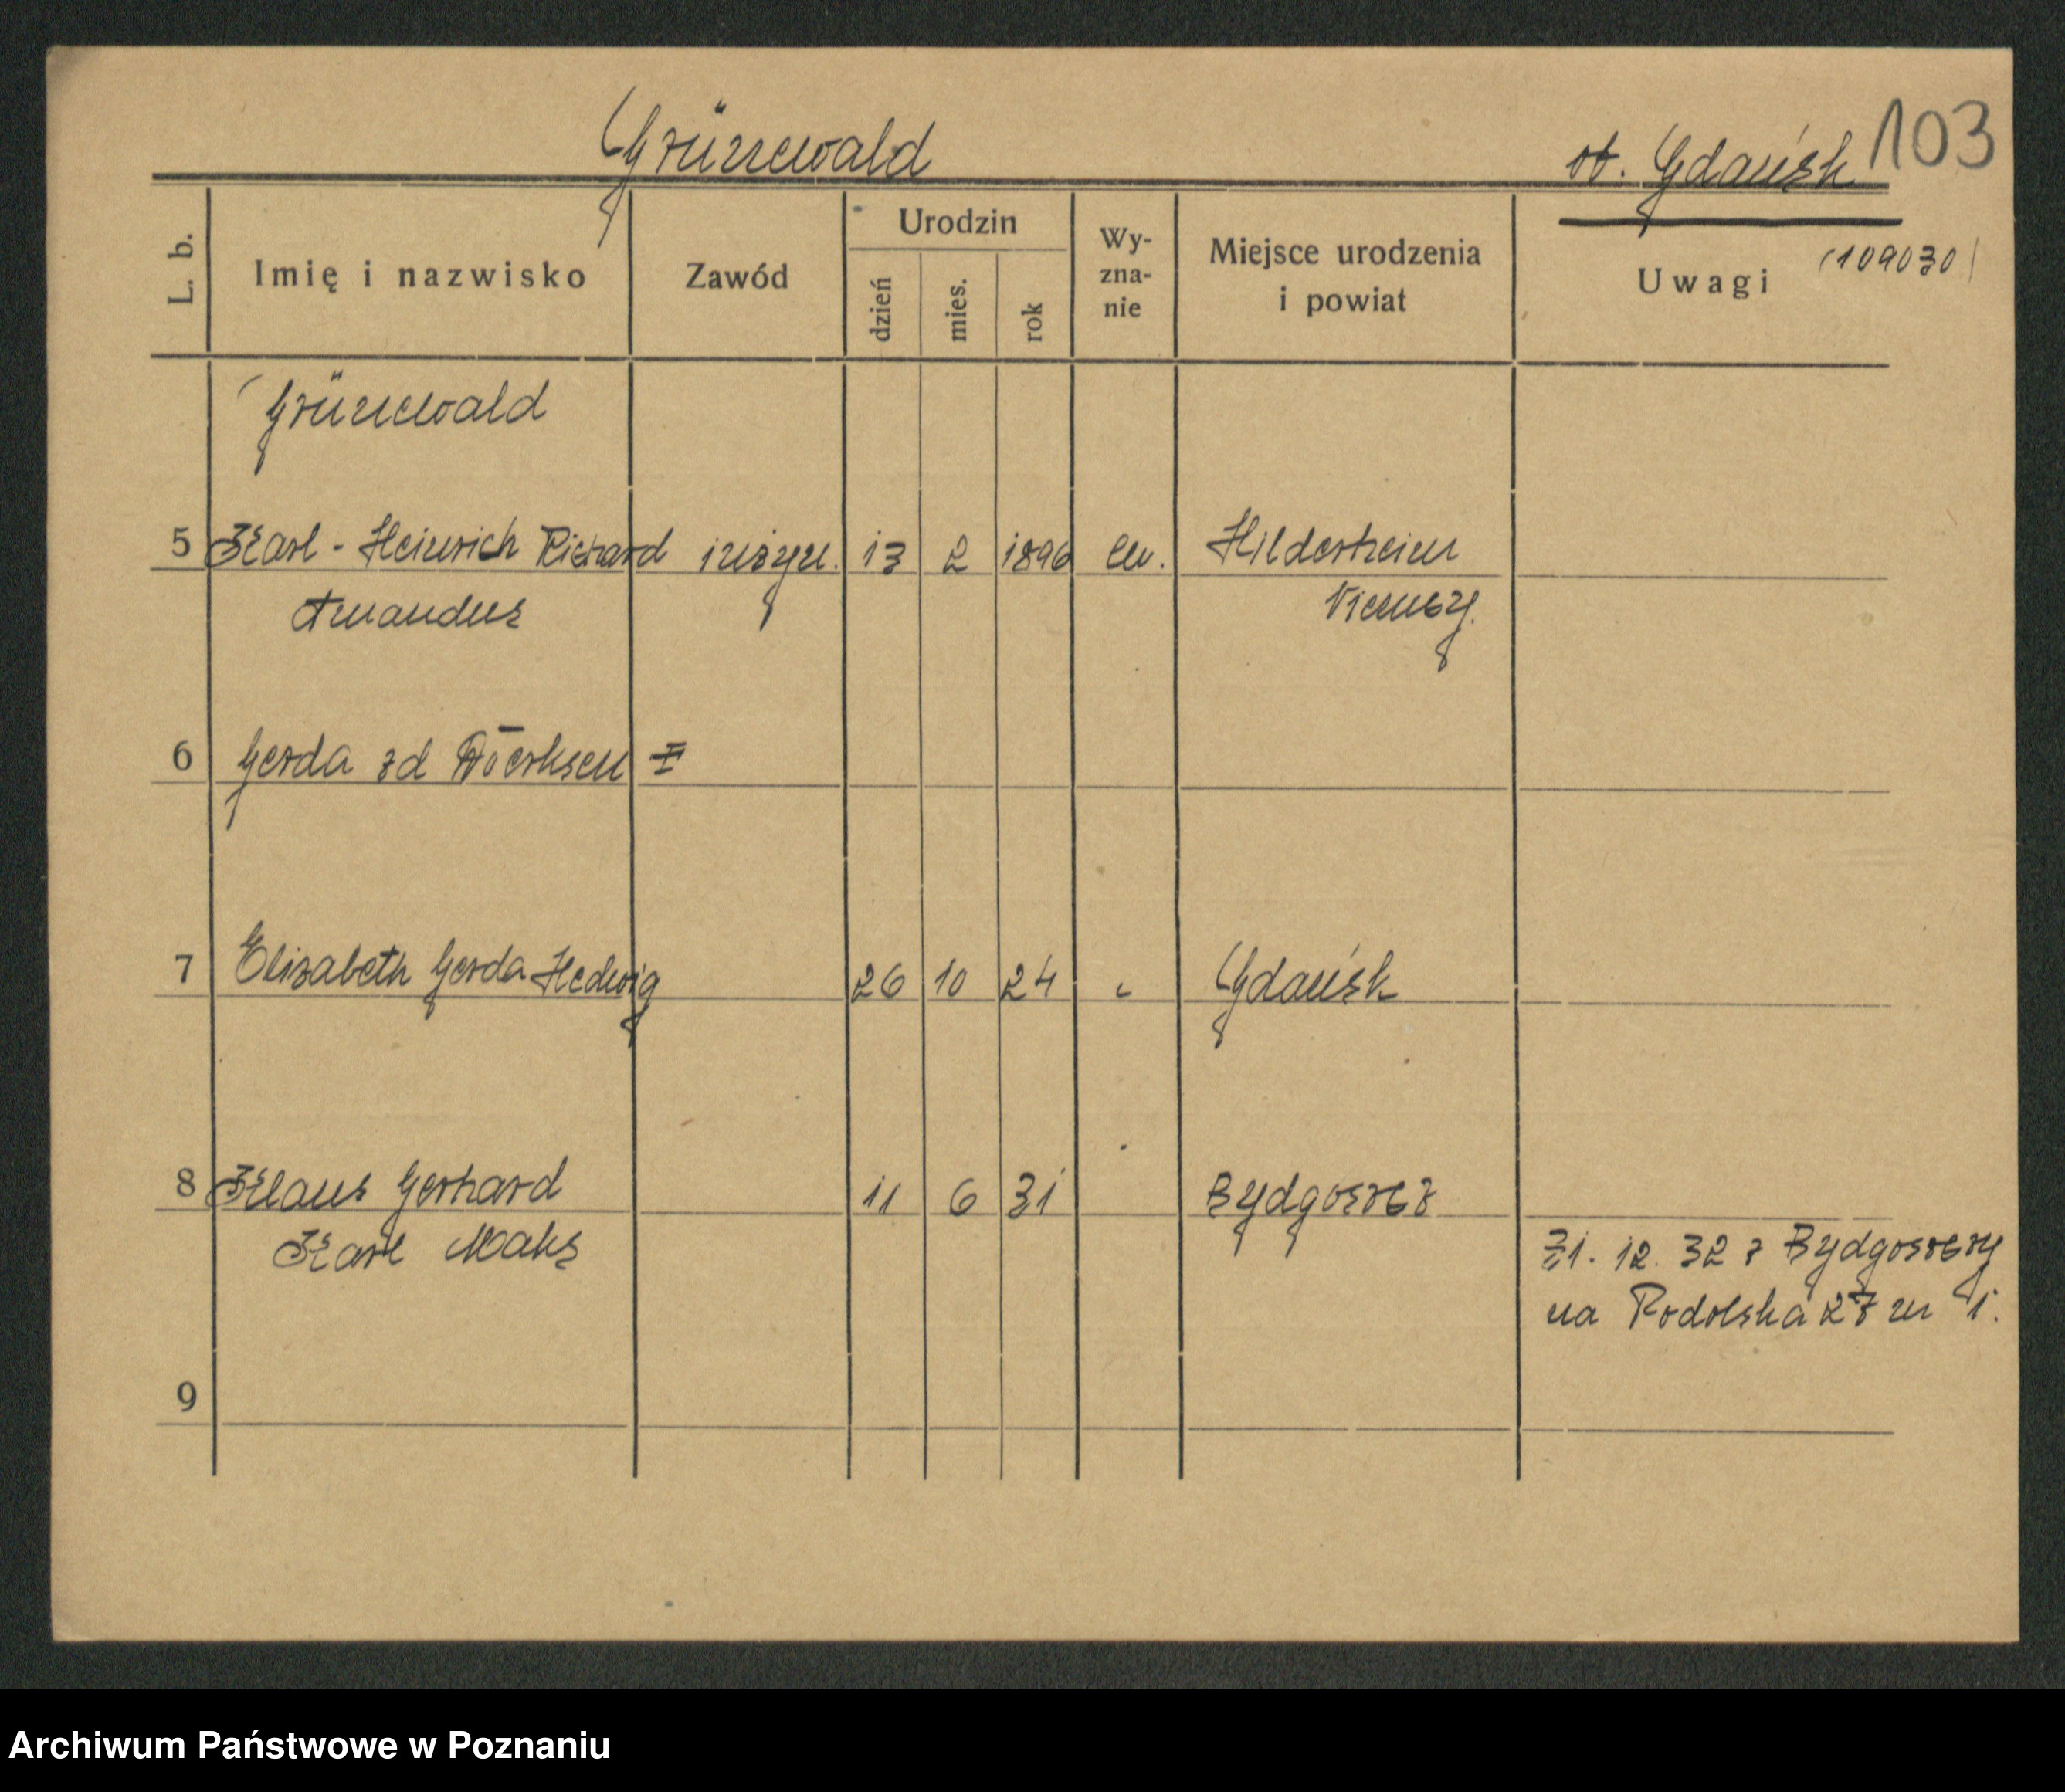 Grünewald ob. Gdańsk 103
L. b. Imię i nazwisko Zawód Urodzin dzień mies. rok Wy-zna-nie Miejsce urodzenia i powiat Uwagi (109030)
Grünewald
5 Karl - Heinrich Richard inżyn. 13 2 1896 ew. Hildesheim
Amandus Niemcy.
6 Gerda zd Döerksen =
7 Elisabeth Gerda Hedwig 26 10 24 " Gdańsk
8 Klaus Gerhard 11 6 31 Bydgoszcz
Karl Maks 31. 12. 32 z Bydgoszczy
na Podolska 27 m 1.
9
Archiwum Państwowe w Poznaniu